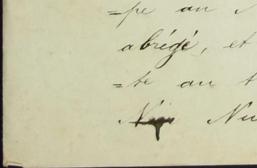 =pe au
abrégé, et
=te au t
Nu